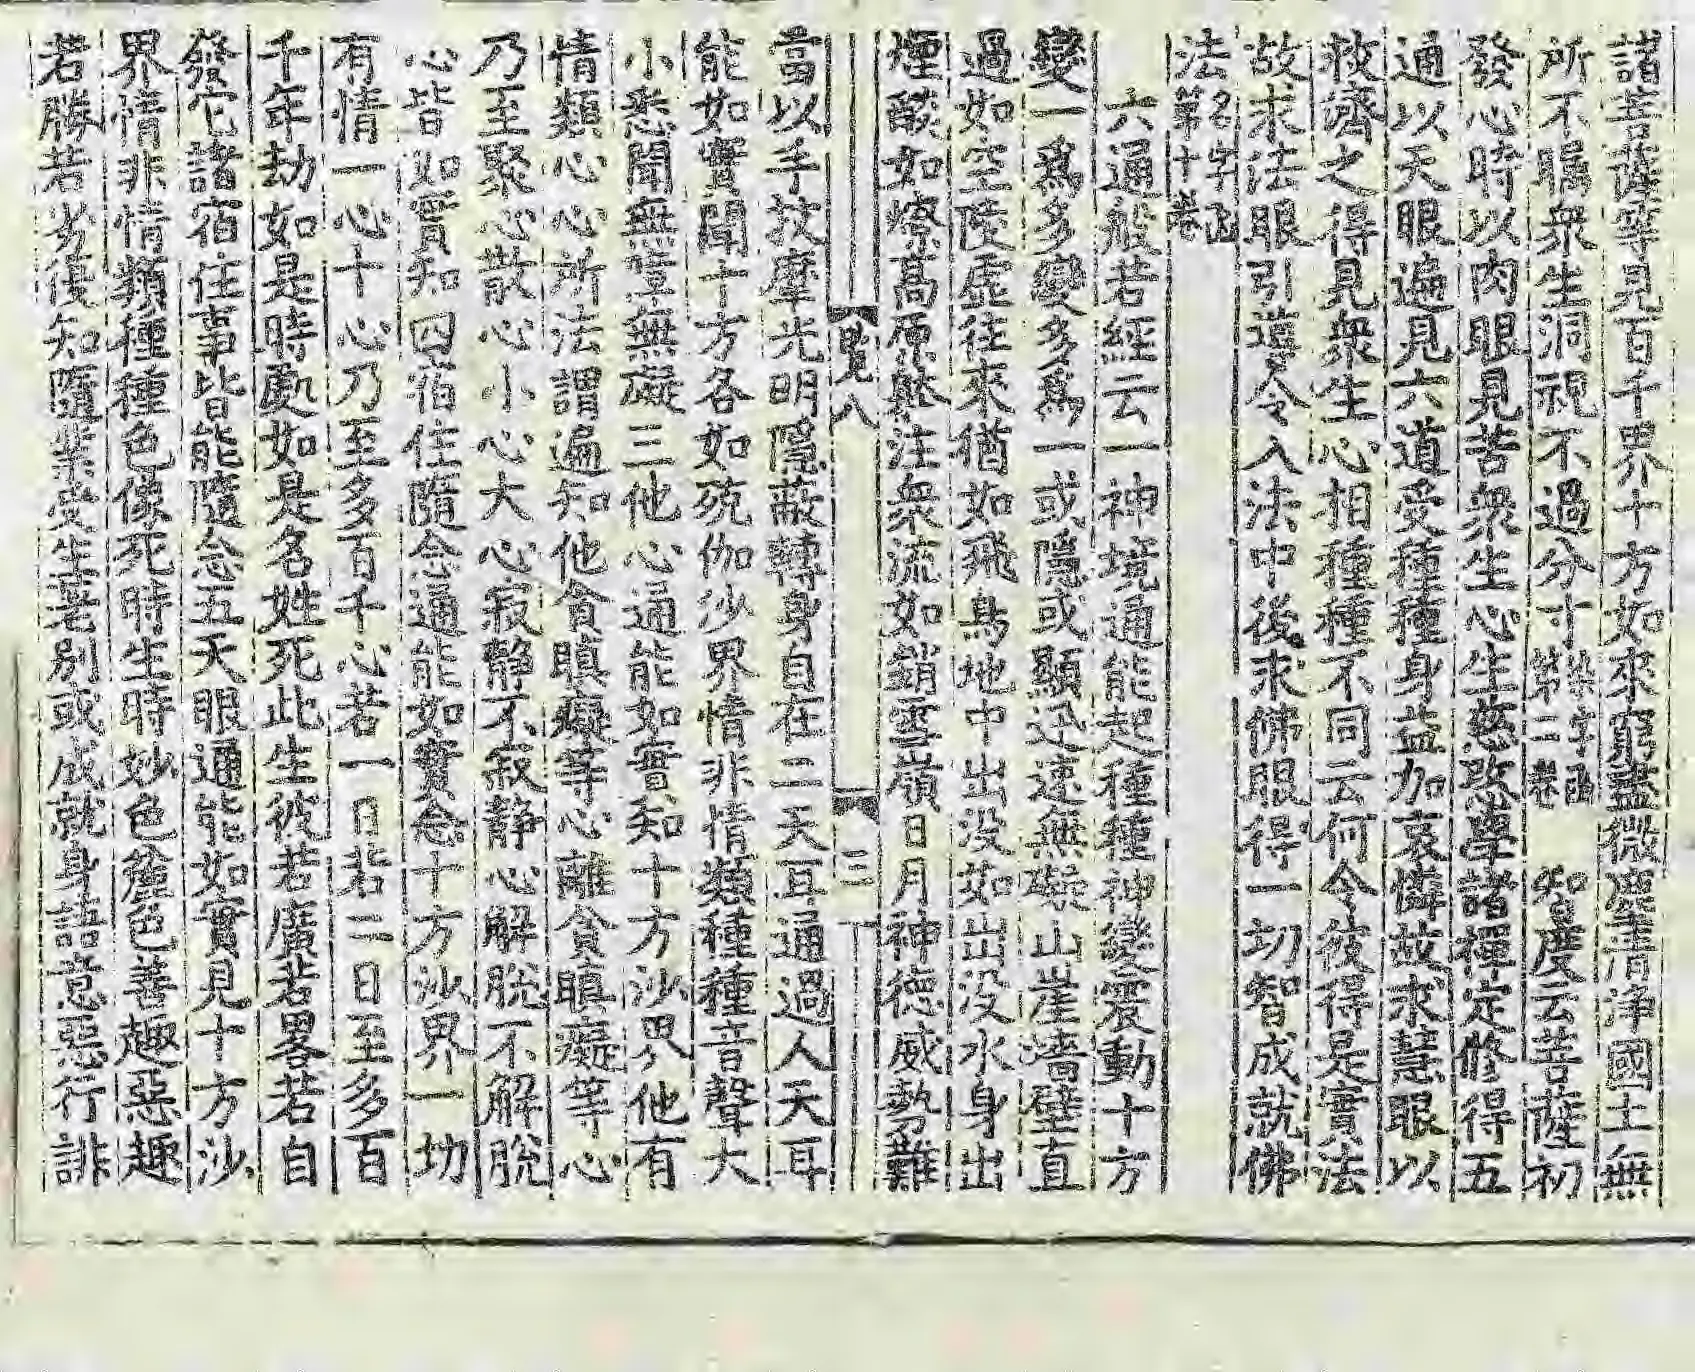 諸菩薩等見百千界十方如來窮盡微塵清淨國土無
所不矚衆生洞視不過分寸 知度云菩薩初
發心時以肉眼見苦衆生心生慈改學諸禪定修得五
通以天眼遍見六道受種種身益加哀憐故求慧眼以
救濟之得見衆生心相種種不同云何令彼得是實法
故求法眼引導令入法中後求佛眼得一切智成就佛
法名字函第十卷
六通般若經云一神境通能起種種神變震動十方
變一爲多變多爲一或隱或顯迅速無礙山崖墻壁直
過如空陵虛往來猶如飛鳥地中出没如出没水身出
煙燄如燎高原體注衆流如銷雪嶺日月神德威勢難
覽八 三
當以手抆摩光明隱蔽轉身自在二天耳通過人天耳
能如實聞十方各如殑伽沙界情非情類種種音聲大
小悉聞無障無礙三他心通能如實知十方沙界他有
情類心心所法謂遍知他貪瞋癡等心離貪瞋癡等心
乃至聚心散心小心大心寂静不寂静心解脱不解脱
心皆如實知四宿住隨念通能如實念十方沙界一切
有情一心十心乃至多百千心若一日若二日至多百
千年劫如是時處如是名姓死此生彼若廣若畧若自
發它諸宿住事皆能隨念五天眼通能如實見十方沙
界情非情類種種色像死時生時妙色麄色善趣惡趣
若勝若劣後知隨業受生差別或成就身語意惡行誹